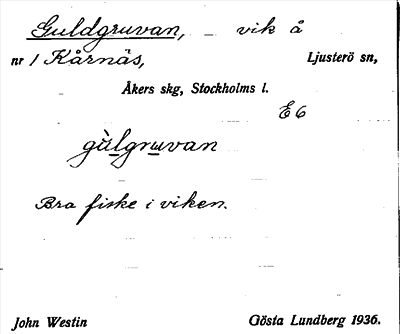 Guldgruvan, vik å
nr 1 Kårnäs, Ljusterö sn,
Åkers skg, Stockholms l.
E6
gùlgruvan
Bra fiske i viken.
John Westin Gösta Lundberg 1936.